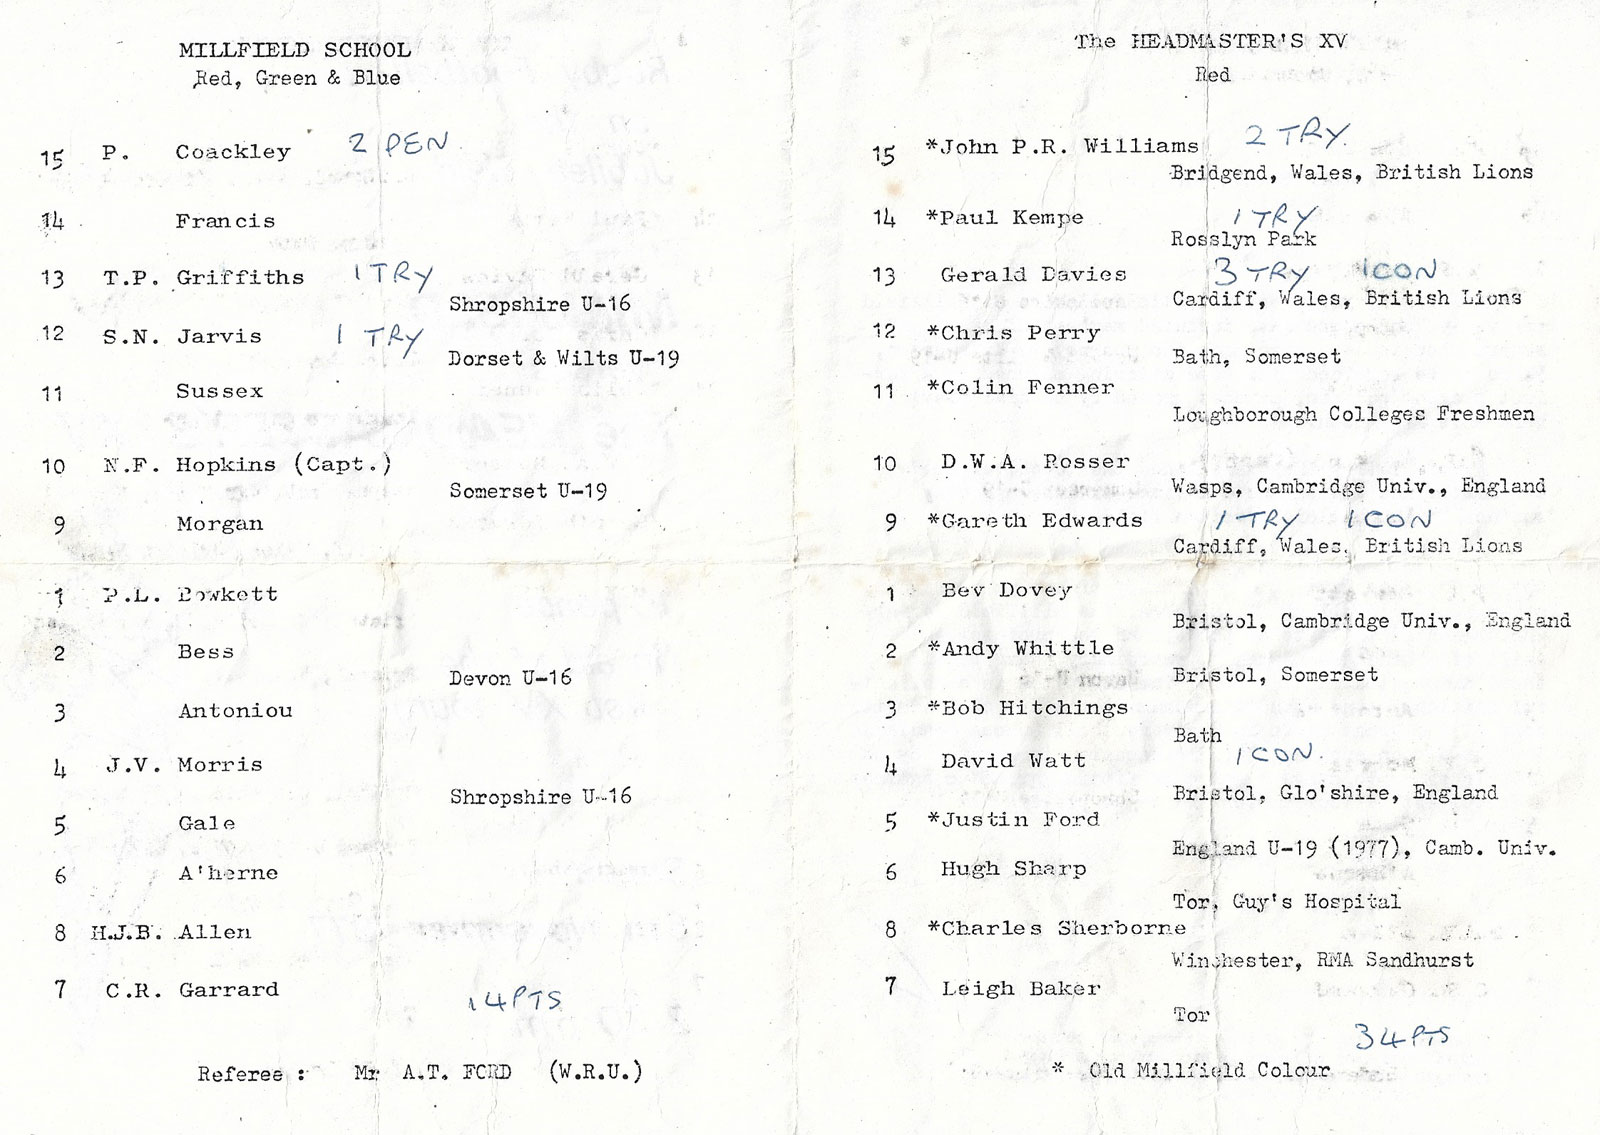 MILLFIELD SCHOOL
Red, Green & Blue
15 P. Coackley 2 PEN
14 Francis
13 T.P. Griffiths 1 TRY
Shropshire U-16
12 S.N. Jarvis 1 TRY
Dorset & Wilts U-19
11 Sussex
10 N.F. Hopkins (Capt.)
Somerset U-19
9 Morgan
1 P.L. Bowkett
2 Bess
Devon U-16
3 Antoniou
4 J.V. Morris
Shropshire U-16
5 Gale
6 A'herne
8 H.J.B. Allen
7 C.R. Garrard
14 PTS
Referee : Mr A.T. FORD (W.R.U.)
The HEADMASTER'S XV
Red
15 *John P.R. Williams 2 TRY.
Bridgend, Wales, British Lions
14 *Paul Kempe 1 TRY
Rosslyn Park
13 Gerald Davies 3 TRY 1 CON
Cardiff, Wales, British Lions
12 *Chris Perry
Bath, Somerset
11 *Colin Fenner
Loughborough Colleges Freshmen
10 D.W.A. Rosser
Wasps, Cambridge Univ., England
9 *Gareth Edwards 1 TRY 1 CON
Cardiff, Wales, British Lions
1 Bev Dovey
Bristol, Cambridge Univ., England
2 *Andy Whittle
Bristol, Somerset
3 *Bob Hitchings
Bath
4 David Watt 1 CON.
Bristol, Glo'shire, England
5 *Justin Ford
England U-19 (1977), Camb. Univ.
6 Hugh Sharp
Tor, Guy's Hospital
8 *Charles Sherborne
Winchester, RMA Sandhurst
7 Leigh Baker
Tor
34 PTS
* Old Millfield Colour